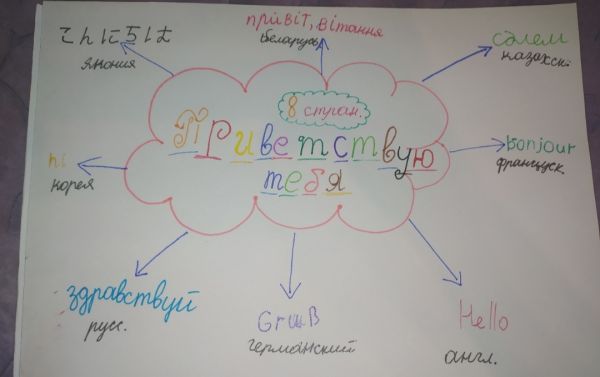 こんにちは
япония
привіт, вітання
беларусь
сәлем
казахск.
8 стран.
Приветствую
тебя
hi
корея
bonjour
француск.
здравствуй
русс.
Gruß
германский
Hello
англ.